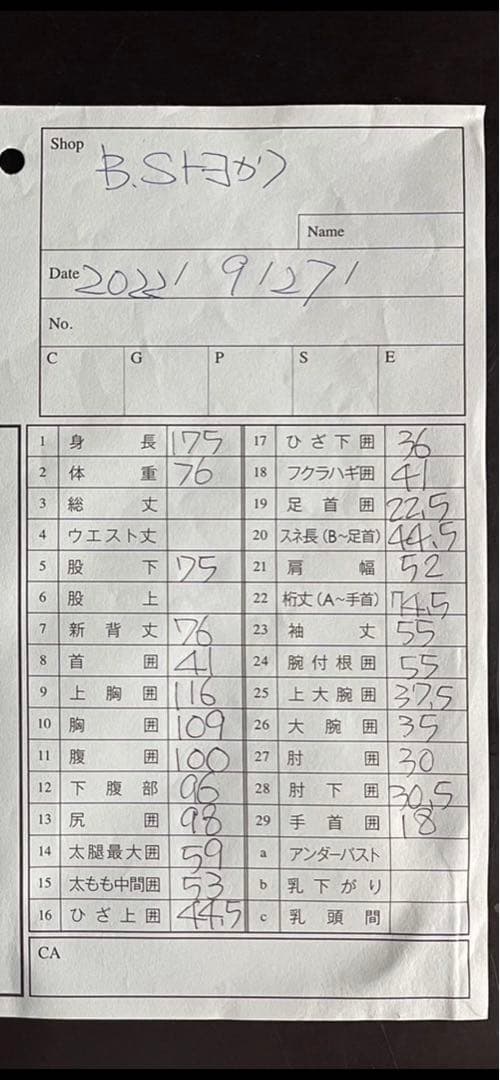 Shop
B.Sトヨかつ
Name
Date 2022/ 9/27/
No.
C G P S E
1 身長 175 17 ひざ下囲 36
2 体重 76 18 フクラハギ囲 41
3 総丈 19 足首囲 22,5
4 ウエスト丈 20 スネ長(B~足首) 44,5
5 股下 75 21 肩幅 52
6 股上 22 桁丈(A~手首) 74,5
7 新背丈 76 23 袖丈 55
8 首囲 41 24 腕付根囲 55
9 上胸囲 116 25 上大腕囲 37,5
10 胸囲 109 26 大腕囲 35
11 腹囲 100 27 肘囲 30
12 下腹部 96 28 肘下囲 30,5
13 尻囲 98 29 手首囲 18
14 太腿最大囲 59 a アンダーバスト
15 太もも中間囲 53 b 乳下がり
16 ひざ上囲 44,5 c 乳頭間
CA